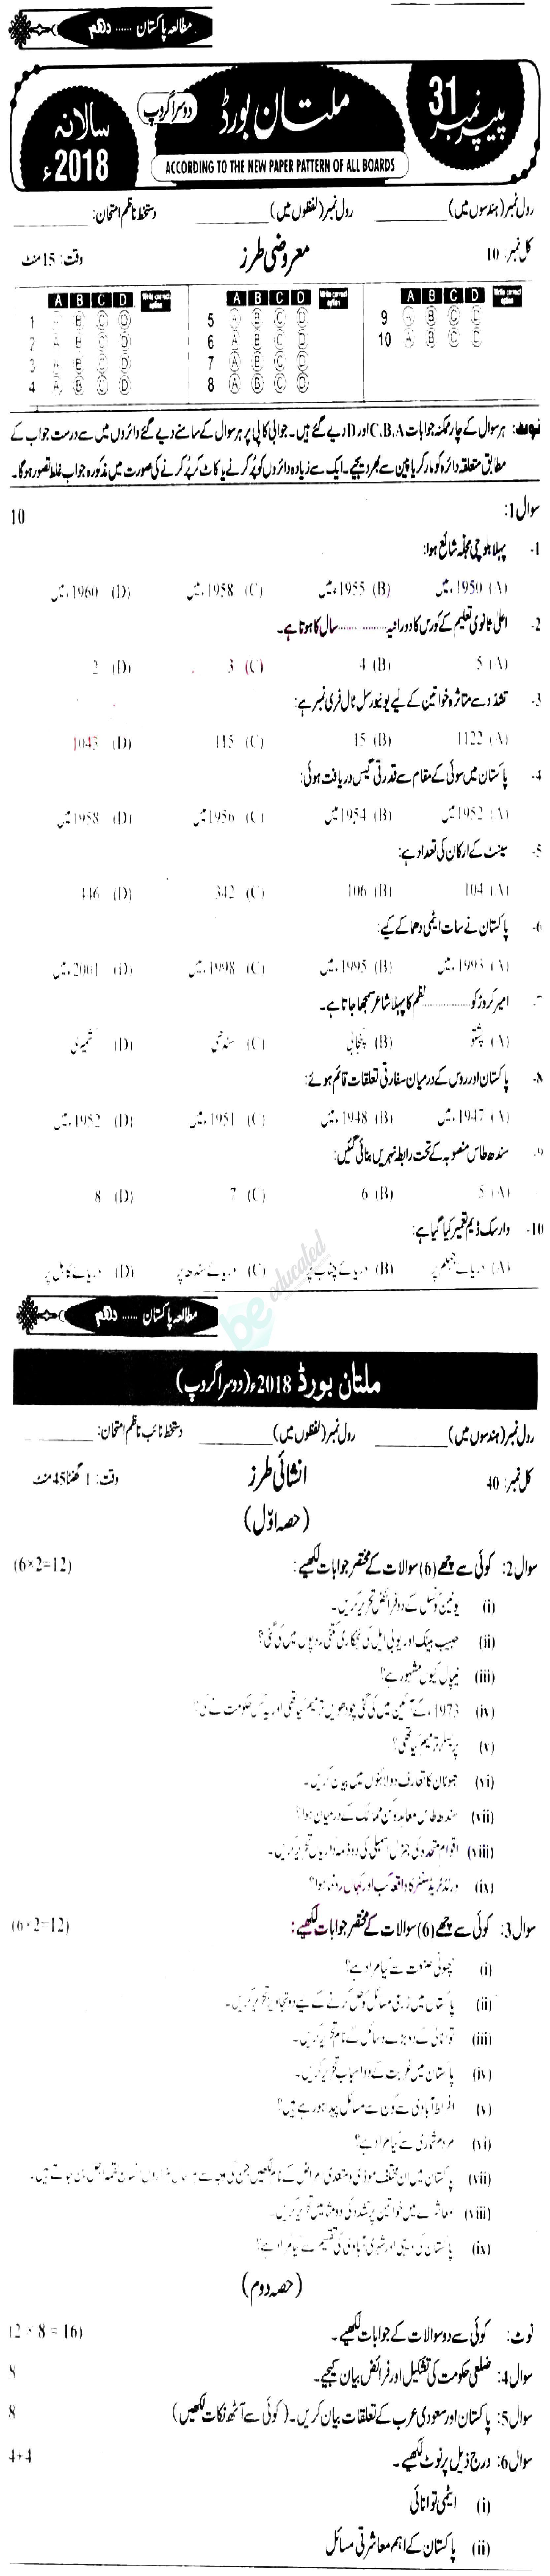 مطالعہ پاکستان ...... دہم
پیپر نمبر 31
ملتان بورڈ
دوسرا گروپ
سالانہ 2018ء
ACCORDING TO THE NEW PAPER PATTERN OF ALL BOARDS
رول نمبر (ہندسوں میں) ________ رول نمبر (لفظوں میں) ________ دستخط ناظم امتحان: ________
کل نمبر: 10 معروضی طرز وقت: 15 منٹ
A B C D Write correct option
1 A B C D
2 A B C D
3 A B C D
4 A B C D
A B C D Write correct option
5 A B C D
6 A B C D
7 A B C D
8 A B C D
A B C D Write correct option
9 A B C D
10 A B C D
نوٹ: ہر سوال کے چار ممکنہ جوابات C,B,A اور D دیے گئے ہیں۔ جوابی کاپی پر ہر سوال کے سامنے دیے گئے دائروں میں سے درست جواب کے
مطابق متعلقہ دائرہ کو مارکر یا پین سے بھر دیجیے۔ ایک سے زیادہ دائروں کو پُر کرنے یا کاٹ کر پُر کرنے کی صورت میں مذکورہ جواب غلط تصور ہوگا۔
سوال1: 10
1- پہلا بلوچی مجلّہ شائع ہوا:
(A) 1950ء میں (B) 1955ء میں (C) 1958ء میں (D) 1960ء میں
2- اعلیٰ ثانوی تعلیم کے کورس کا دورانیہ ............... سال کا ہوتا ہے۔
(A) 5 (B) 4 (C) 3 (D) 2
3- تشدد سے متاثرہ خواتین کے لیے یونیورسل ٹال فری نمبر ہے:
(A) 1122 (B) 15 (C) 115 (D) 1043
4- پاکستان میں سوئی کے مقام سے قدرتی گیس دریافت ہوئی:
(A) 1952ء میں (B) 1954ء میں (C) 1956ء میں (D) 1958ء میں
5- سینٹ کے ارکان کی تعداد ہے:
(A) 104 (B) 106 (C) 342 (D) 446
6- پاکستان نے سات ایٹمی دھماکے کیے:
(A) 1993ء میں (B) 1995ء میں (C) 1998ء میں (D) 2001ء میں
7- امیر کروڑ کو ............... نظم کا پہلا شاعر سمجھا جاتا ہے۔
(A) پشتو (B) پنجابی (C) سندھی (D) کشمیری
8- پاکستان اور روس کے درمیان سفارتی تعلقات قائم ہوئے:
(A) 1947ء میں (B) 1948ء میں (C) 1951ء میں (D) 1952ء میں
9- سندھ طاس منصوبہ کے تحت رابطہ نہریں بنائی گئیں:
(A) 5 (B) 6 (C) 7 (D) 8
10- وارسک ڈیم تعمیر کیا گیا ہے:
(A) دریائے جہلم پر (B) دریائے چناب پر (C) دریائے سندھ پر (D) دریائے کابل پر
be educated
مطالعہ پاکستان ...... دہم
ملتان بورڈ 2018ء (دوسرا گروپ)
رول نمبر (ہندسوں میں) ________ رول نمبر (لفظوں میں) ________ دستخط نائب ناظم امتحان: ________
کل نمبر: 40 انشائی طرز وقت: 1 گھنٹا 45 منٹ
(حصہ اوّل)
سوال2: کوئی سے چھے (6) سوالات کے مختصر جوابات لکھیے: (6×2=12)
(i) یونین کونسل کے دو فرائض تحریر کریں۔
(ii) حبیب بینک اور یو بی ایل کی نجکاری کتنے روپوں میں کی گئی؟
(iii) نیپال کیوں مشہور ہے؟
(iv) 1973ء کے آئین میں کی گئی چودھویں ترمیم کیا تھی اور یہ کس حکومت نے کی؟
(v) پریسلر ترمیم کیا تھی؟
(vi) بھوٹان کا تعارف دو لائنوں میں بیان کریں۔
(vii) سندھ طاس معاہدہ کن ممالک کے درمیان ہوا؟
(viii) اقوام متحدہ کی جنرل اسمبلی کی دو ذمہ داریاں تحریر کریں۔
(ix) ورلڈ ٹریڈ سنٹر کا واقعہ کب اور کہاں رونما ہوا؟
سوال3: کوئی سے چھے (6) سوالات کے مختصر جوابات لکھیے: (6×2=12)
(i) چھوٹی صنعت سے کیا مراد ہے؟
(ii) پاکستان میں زرعی مسائل کو حل کرنے کے لیے دو تجاویز تحریر کریں۔
(iii) توانائی کے دو بڑے وسائل کے نام تحریر کریں۔
(iv) پاکستان میں غربت کے دو اسباب تحریر کریں۔
(v) افراط آبادی سے کون سے مسائل پیدا ہو رہے ہیں؟
(vi) مردم شماری سے کیا مراد ہے؟
(vii) پاکستان میں ان مختلف موذی و متعدی امراض کے نام لکھیں جن کی وجہ سے ہر سال ہزاروں انسان لقمہ اجل بن جاتے ہیں۔
(viii) معاشرے میں خواتین پر تشدد کی دو مثالیں تحریر کریں۔
(ix) پاکستان کی دیہی اور شہری آبادی کی تقسیم سے کیا مراد ہے؟
(حصہ دوم)
نوٹ: کوئی سے دو سوالات کے جوابات لکھیے۔ (2 × 8 = 16)
سوال4: ضلعی حکومت کی تشکیل اور فرائض بیان کیجیے۔ 8
سوال5: پاکستان اور سعودی عرب کے تعلقات بیان کریں۔ (کوئی سے آٹھ نکات لکھیں) 8
سوال6: درج ذیل پر نوٹ لکھیے۔ 4+4
(i) ایٹمی توانائی
(ii) پاکستان کے اہم معاشرتی مسائل